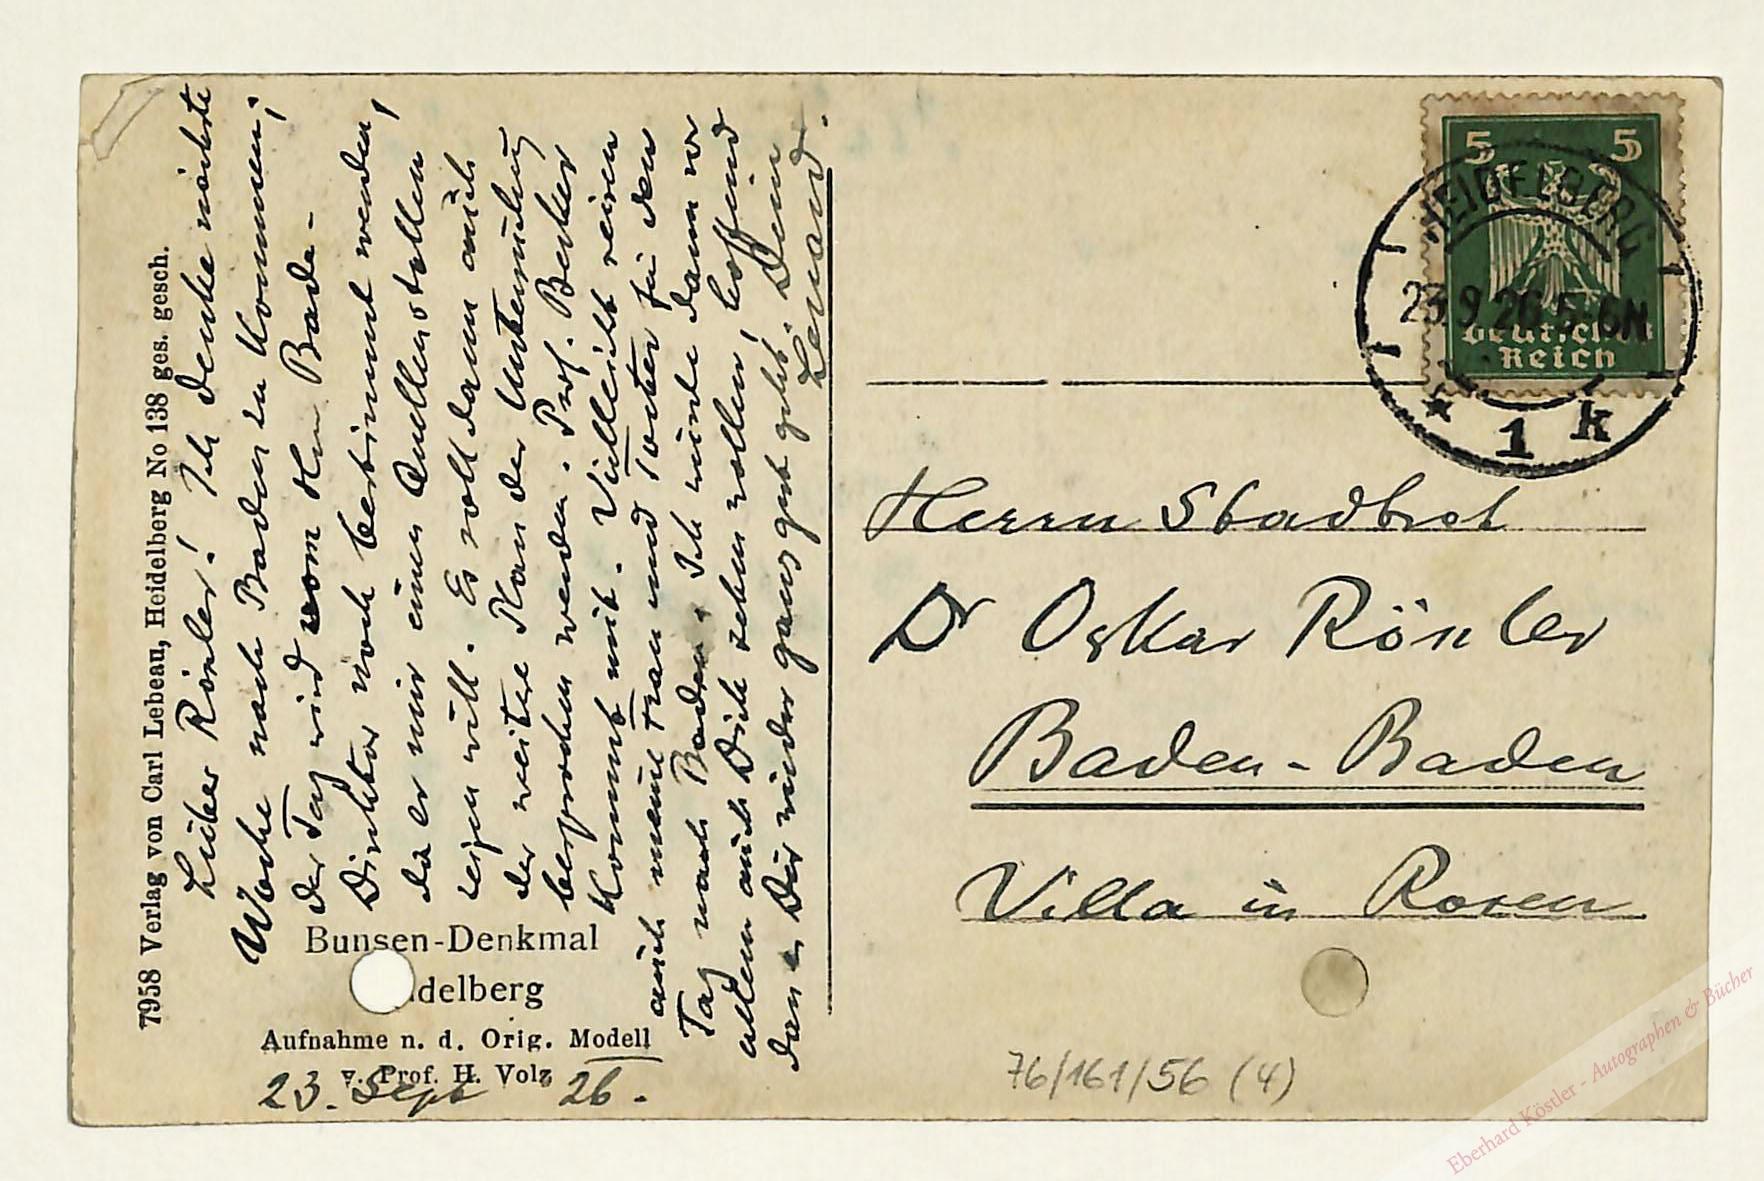 7958 Verlag von Carl Lebeau, Heidelberg No 138 ges. gesch.
Lieber Rößler! Ich denke nächste
Woche nach Baden zu kommen;
der Tag wird vom Hn Bade-
Direktor noch bestimmt werden,
da er mir einen Quellenstollen
zeigen will. Es soll dann auch
der weitere Plan der Untersuchung
besprochen werden. Prof. Becker
kommt mit. Vielleicht reisen
auch meine Frau und Tochter für den
Tag nach Baden. Ich würde dann vor
allem auch Dich sehen wollen, hoffend
dan es Dir wieder ganz gut geht. Dein
Lenard.
Bunsen-Denkmal
delberg
Aufnahme n. d. Orig. Modell
v. Prof. H. Volz
23. Sept 26.
5 5
Deutsches
Reich
HEIDELBERG
23.9.26.5-6N
* 1 k
Herrn Stadtrat
Dr Oskar Rößler
Baden-Baden
Villa in Rosen
76/161/56 (4)
Eberhard Köstler - Autographen & Bücher